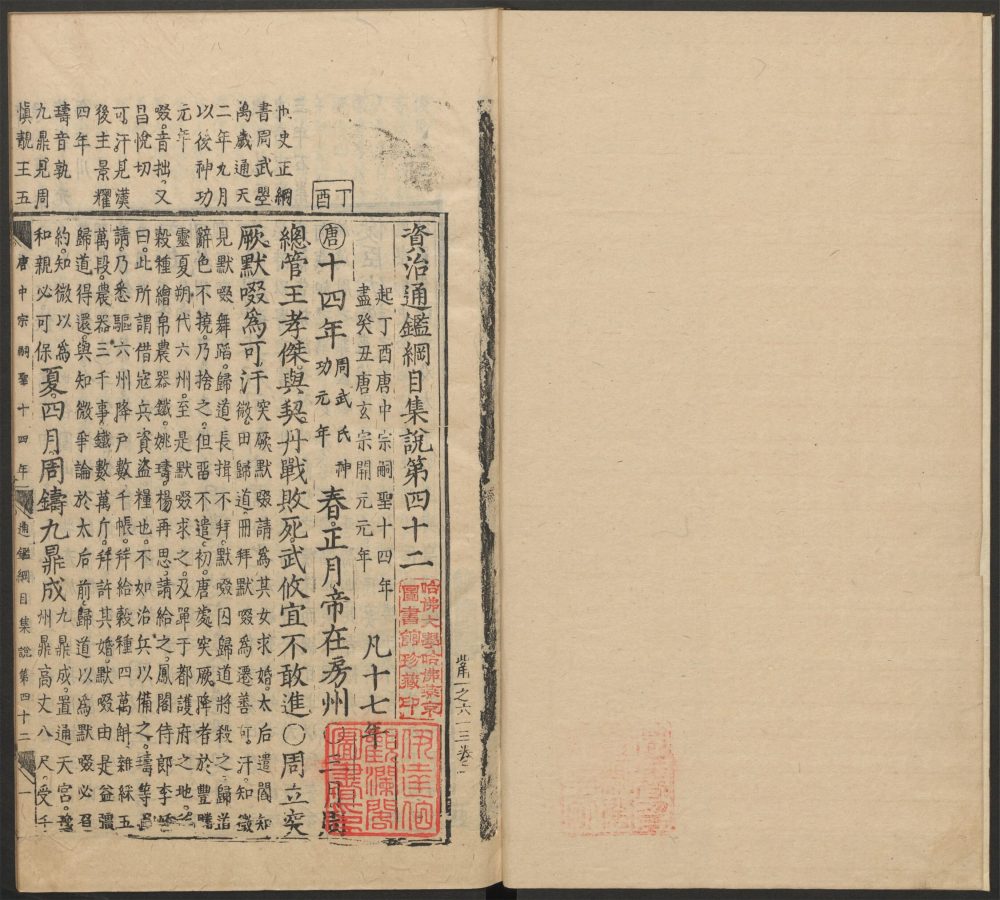 史正綱
書周武曌
萬歲通天
二年九月
以後神功
元年
啜音拙又
昌悅切
可汗見漢
後主景耀
四年
璹音孰
九鼎見周
愼靚王五
丁酉
資治通鑑綱目集說第四十二
起丁酉唐中宗嗣聖十四年
盡癸丑唐玄宗開元元年
凡十七年
唐十四年周武氏神功元年春正月帝在房州三月周
總管王孝傑與契丹戰敗死武攸宜不敢進〇周立突
厥默啜爲可汗突厥默啜請爲其女求婚太后遣閻知
微田歸道冊拜默啜爲遷善可汗知微
見默啜舞蹈歸道長揖不拜默啜囚歸道將殺之歸道
辭色不撓乃捨之但畱不遣初唐處突厥降者於豐勝
靈夏朔代六州至是默啜求之及單于都護府之地
穀種繒帛農器鐵姚璹楊再思請給之鳳閣侍郎李嶠
曰此所謂借寇兵資盜糧也不如治兵以備之璹等固
請乃悉驅六州降戶數千帳幷給穀種四萬斛雜綵五
萬段農器三千事鐵數萬斤幷許其婚默啜由是益彊
歸道得還與知微爭論於太后前歸道以爲默啜必召
約知微以爲
和親必可保夏四月周鑄九鼎成九鼎成置通天宮豫
州鼎高丈八尺受千
唐中宗嗣聖十四年
通鑑綱目集說第四十二
一
哈佛大學哈佛燕京
圖書館珍藏印